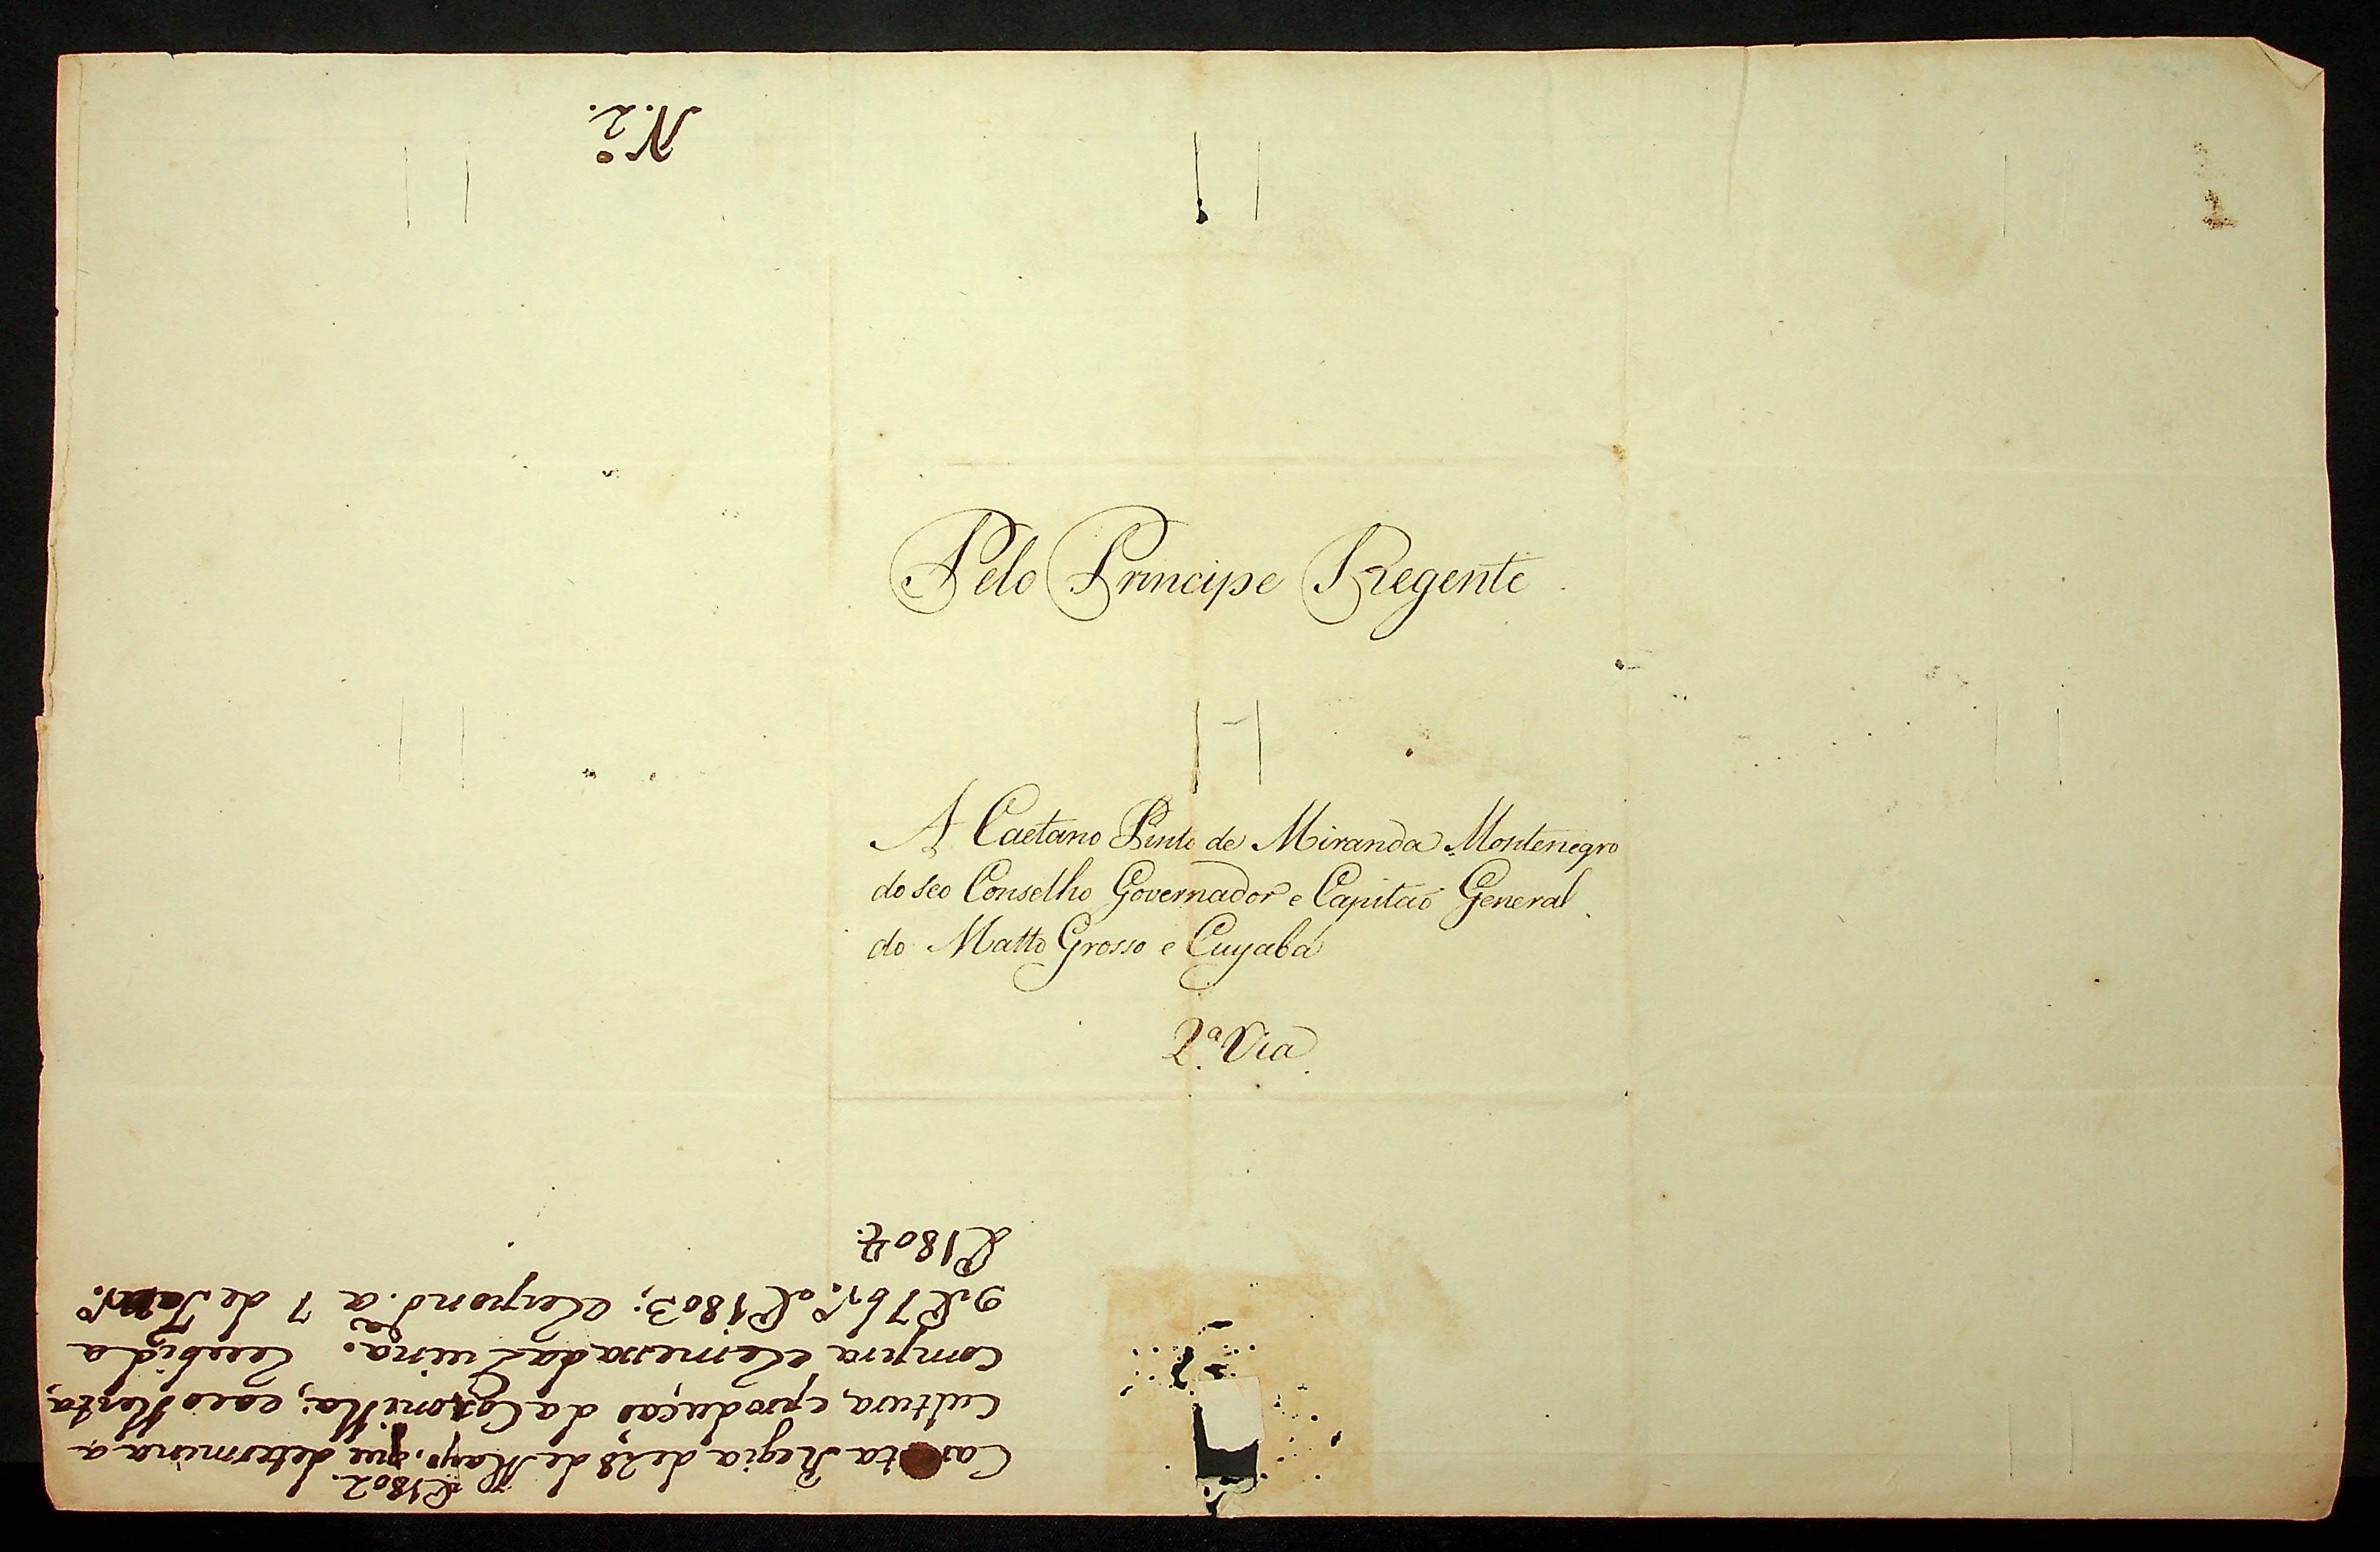 N.º 2.
Pelo Principe Regente
A Caetano Pinto de Miranda Montenegro
do seo Conselho Governador e Capitaõ General
do Matto Grosso e Cuyabá
2.ª Via
Carta Regia de 28 de Mayo, que determina a
d'1802.
cultura, e produçaõ da Coxonilha;
compra e remessa da Quina. Recebida a
9 d'7br.º d'1803; e respond.da a 7 de Janr.º
d'1804.